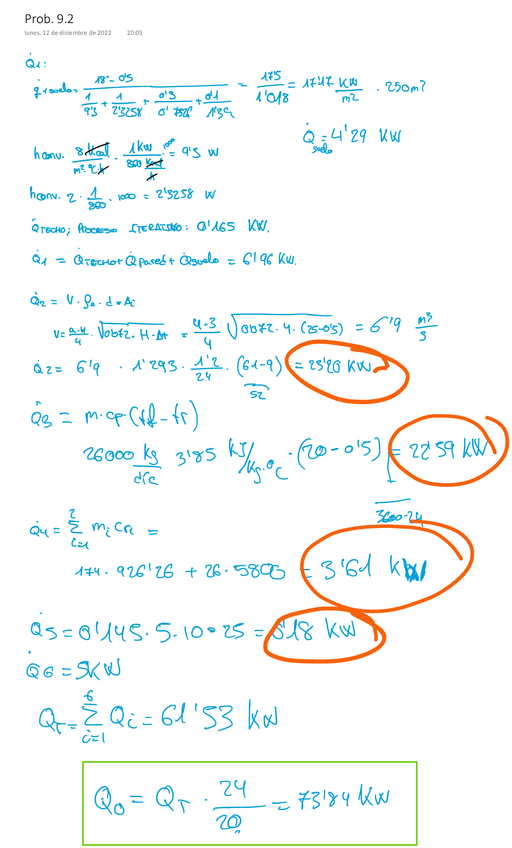 Prob. 9.2
lunes, 12 de diciembre de 2022 20:05
Q̇1:
q̇ suelo = (18 - 0'5) / (1/9'3 + 1/2'3258 + 0'3/0'7526 + 0'1/1'39) = 17'5 / 1'018 = 17'17 KW/m² · 250m²
Q̇suelo = 4'29 KW
h conv. 8 Kcal/m²·ºC·h · 1KW/860 Kcal/h · 1000 = 9'3 W
h conv. 2 · 1/860 · 1000 = 2'3258 W
Q̇TECHO; PROCESO ITERATIVO: 0'165 KW.
Q̇1 = Q̇TECHO + Q̇Pared + Q̇suelo = 6'96 KW.
Q̇2 = V · ρA · d · Δi
V = a.H/4 · √0'072 · H · Δt = 4·3/4 √0'072 · 4 · (25-0'5) = 6'9 m³/s
Q̇2 = 6'9 · 1'293 · 1'2/24 · (61-9) = 23'20 KW
52
Q̇3 = m · cp (tf - tr)
26000 kg/día 3'85 KJ/Kg·ºC · (20 - 0'5) = 22'59 KW
3600·24
Q̇4 = Σ mi CRi =
i=1
174 · 926'26 + 26 · 5803 = 3'61 KW
Q̇5 = 0'145 · 5 · 10 · 25 = 0'18 KW
Q̇6 = 5KW
QT = Σ Qi = 61'53 KW
i=1
6
Q0 = QT · 24/20 = 73'84 KW